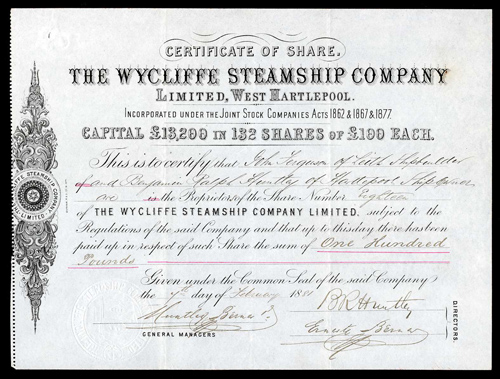 CERTIFICATE OF SHARE.
THE WYCLIFFE STEAMSHIP COMPANY
LIMITED, WEST HARTLEPOOL.
INCORPORATED UNDER THE JOINT STOCK COMPANIES ACTS 1862 & 1867 & 1877.
CAPITAL £13,200 IN 132 SHARES OF £100 EACH.
This is to certify that John Ferguson of Leith Shipbuilder
and Benjamin Ralph Huntley of Hartlepool Shipowner
are the Proprietors of the Share Number Eighteen
OF THE WYCLIFFE STEAMSHIP COMPANY LIMITED. subject to the
Regulations of the said Company and that up to this day there has been
paid up in respect of such Share the sum of One Hundred
Pounds
Given under the Common Seal of the said Company
the day of February 1880
B R Huntley
Huntley Berner & Co.
Ernest Berner
GENERAL MANAGERS
DIRECTORS.
THE WYCLIFFE STEAMSHIP COMPANY LIMITED